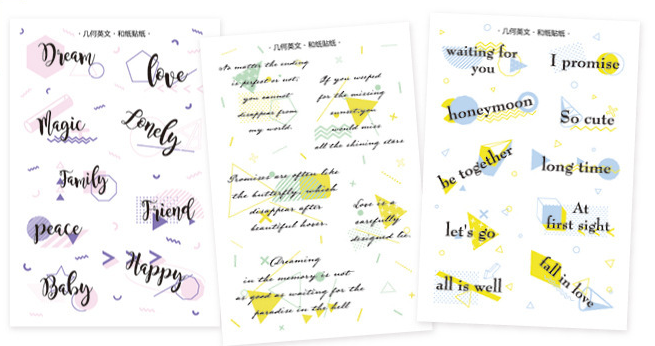 ·几何英文·和纸贴纸·
Dream
love
Magic
Lonely
Family
Friend
peace
Happy
Baby
·几何英文·和纸贴纸·
No matter the ending
is perfect or not,
you cannot
disappear from
my world.
If you weeped
for the missing
sunset, you
would miss
all the shining stars
Promises are often like
the butterfly, which
disappear after
beautiful hover.
Love is a
carefully
designed lie.
Dreaming
in the memory is not
as good as waiting for the
paradise in the hell
·几何英文·和纸贴纸·
waiting for
you
I promise
honeymoon
So cute
be together
long time
let's go
At
first sight
all is well
fall in love